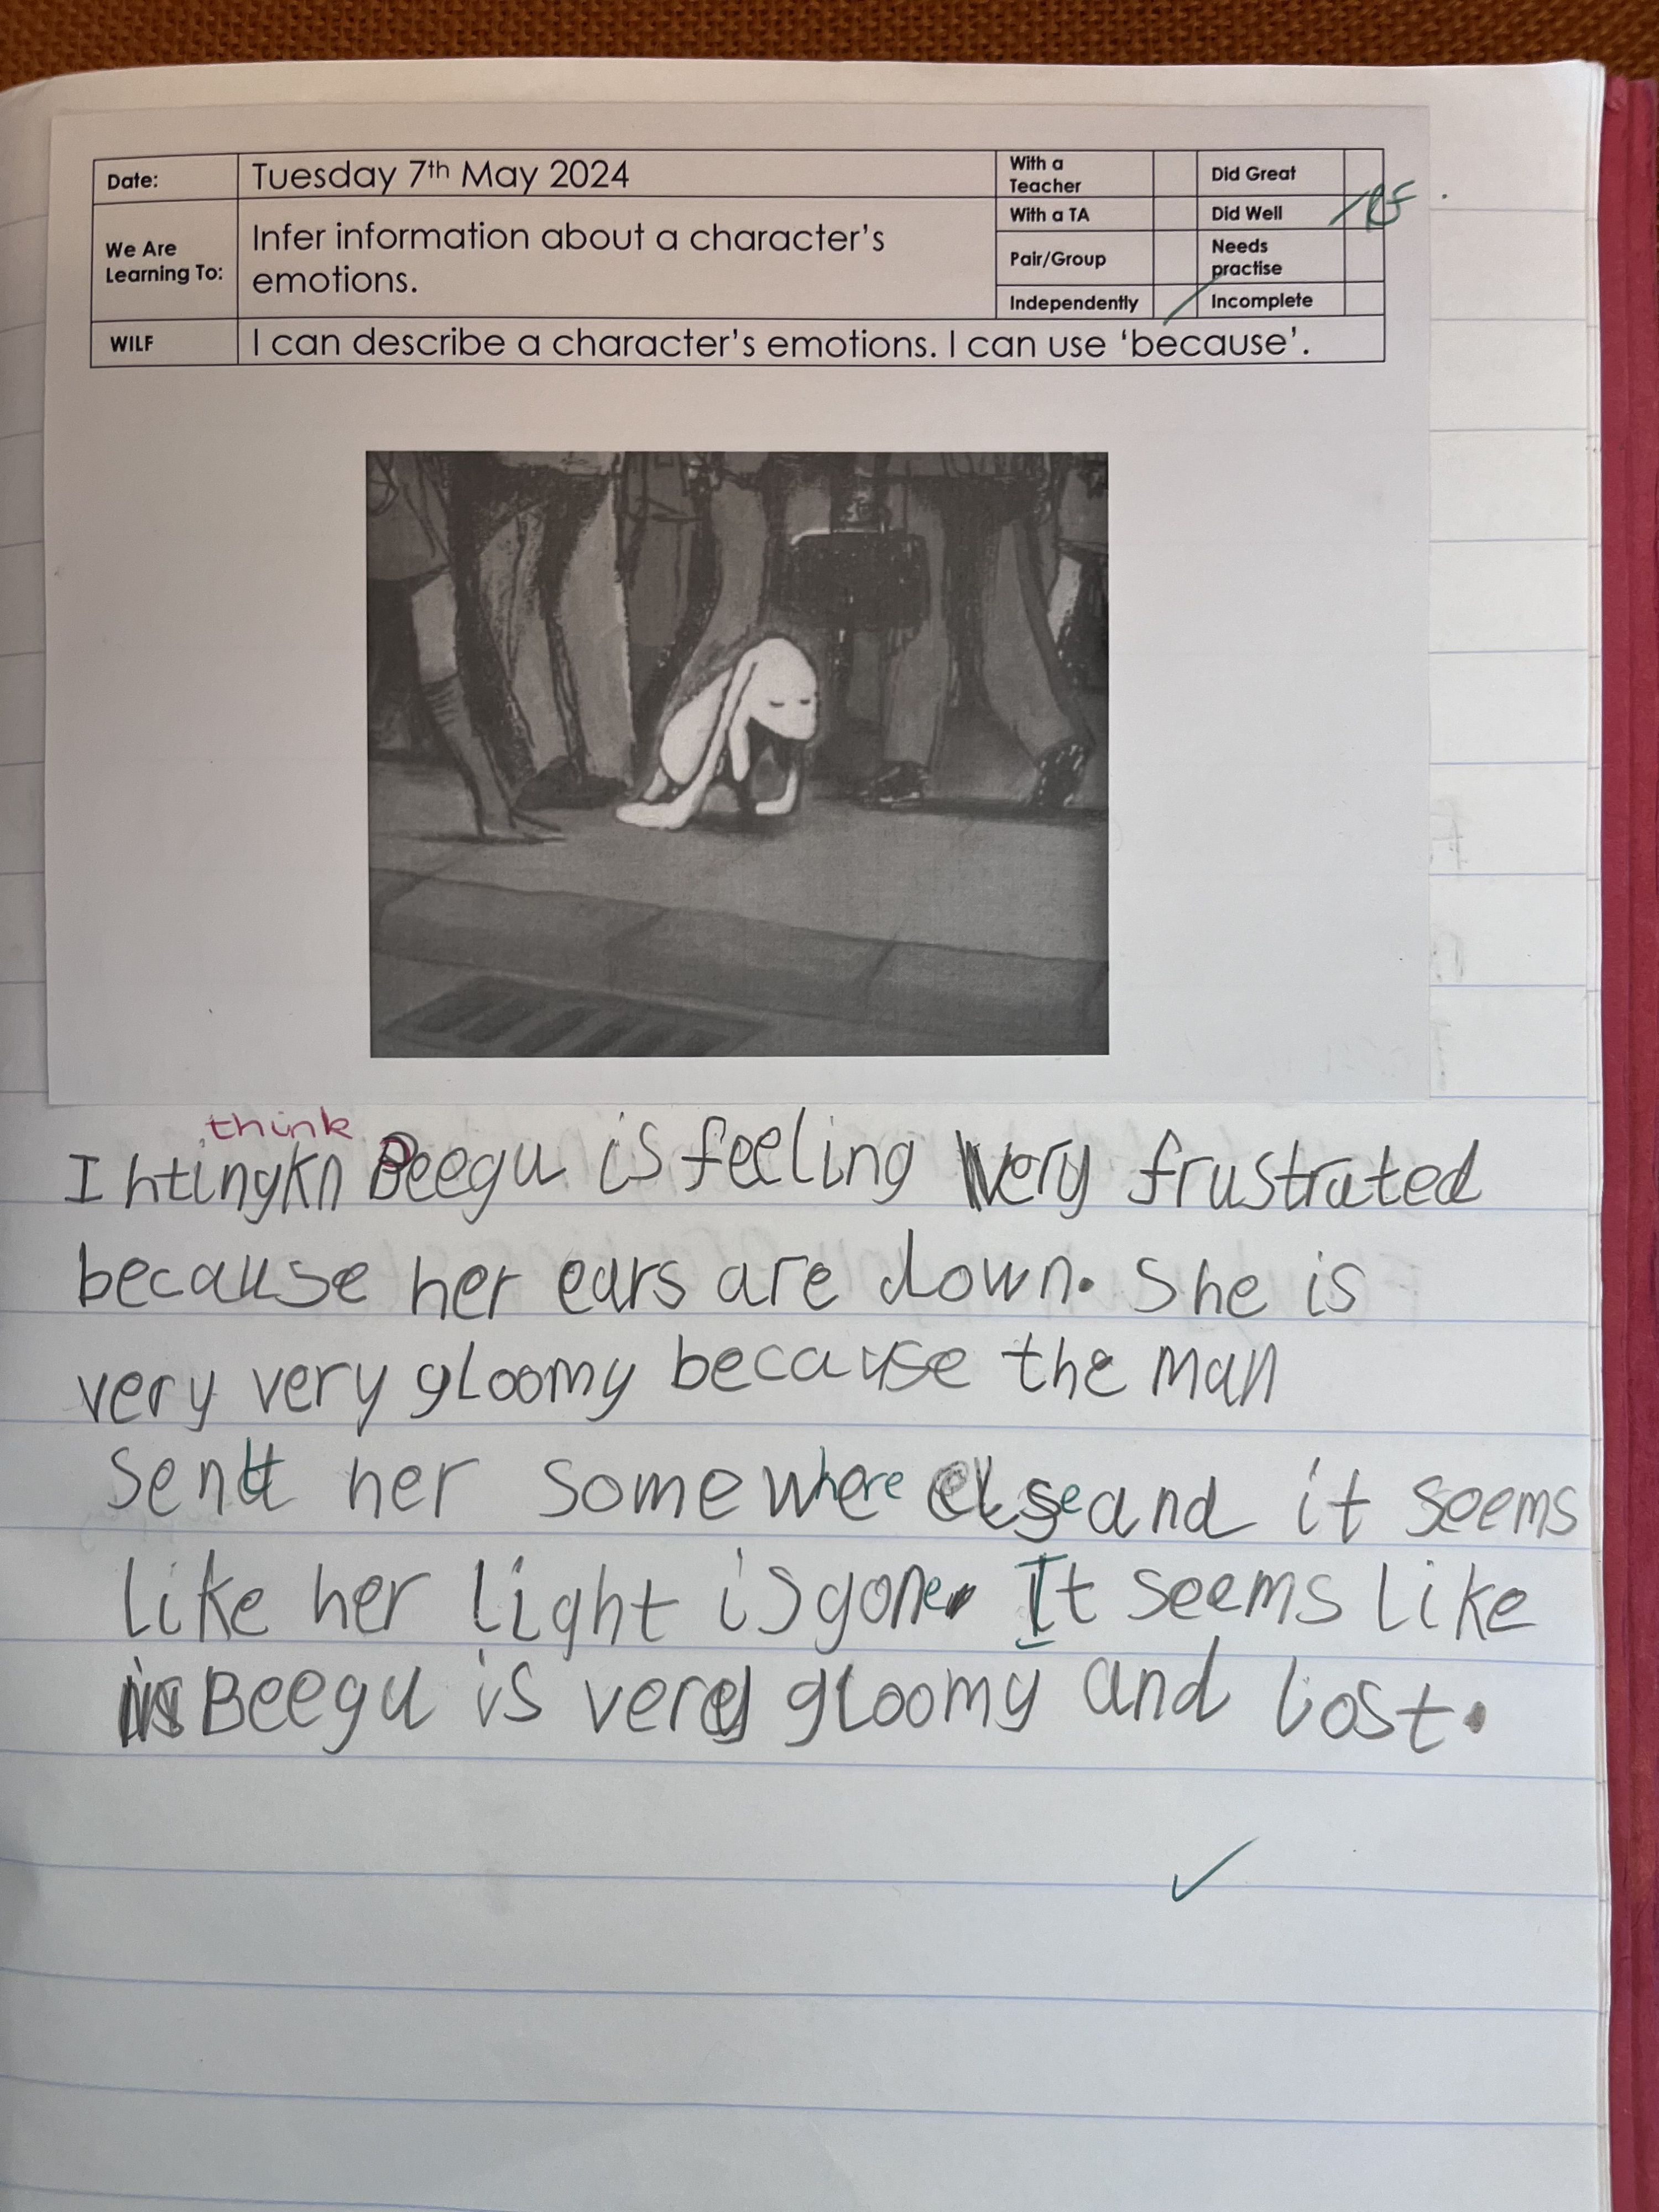 Date:
Tuesday 7th May 2024
With a Teacher
Did Great
We Are Learning To:
Infer information about a character's
emotions.
With a TA
Did Well
Pair/Group
Needs practise
Independently
Incomplete
WILF
I can describe a character's emotions. I can use 'because'.
think
I htingkn Beegu is feeling very frustrated
because her ears are down. She is
very very gloomy because the man
sent her somewhere else and it seems
like her light is gone. It seems like
Beegu is very gloomy and lost.